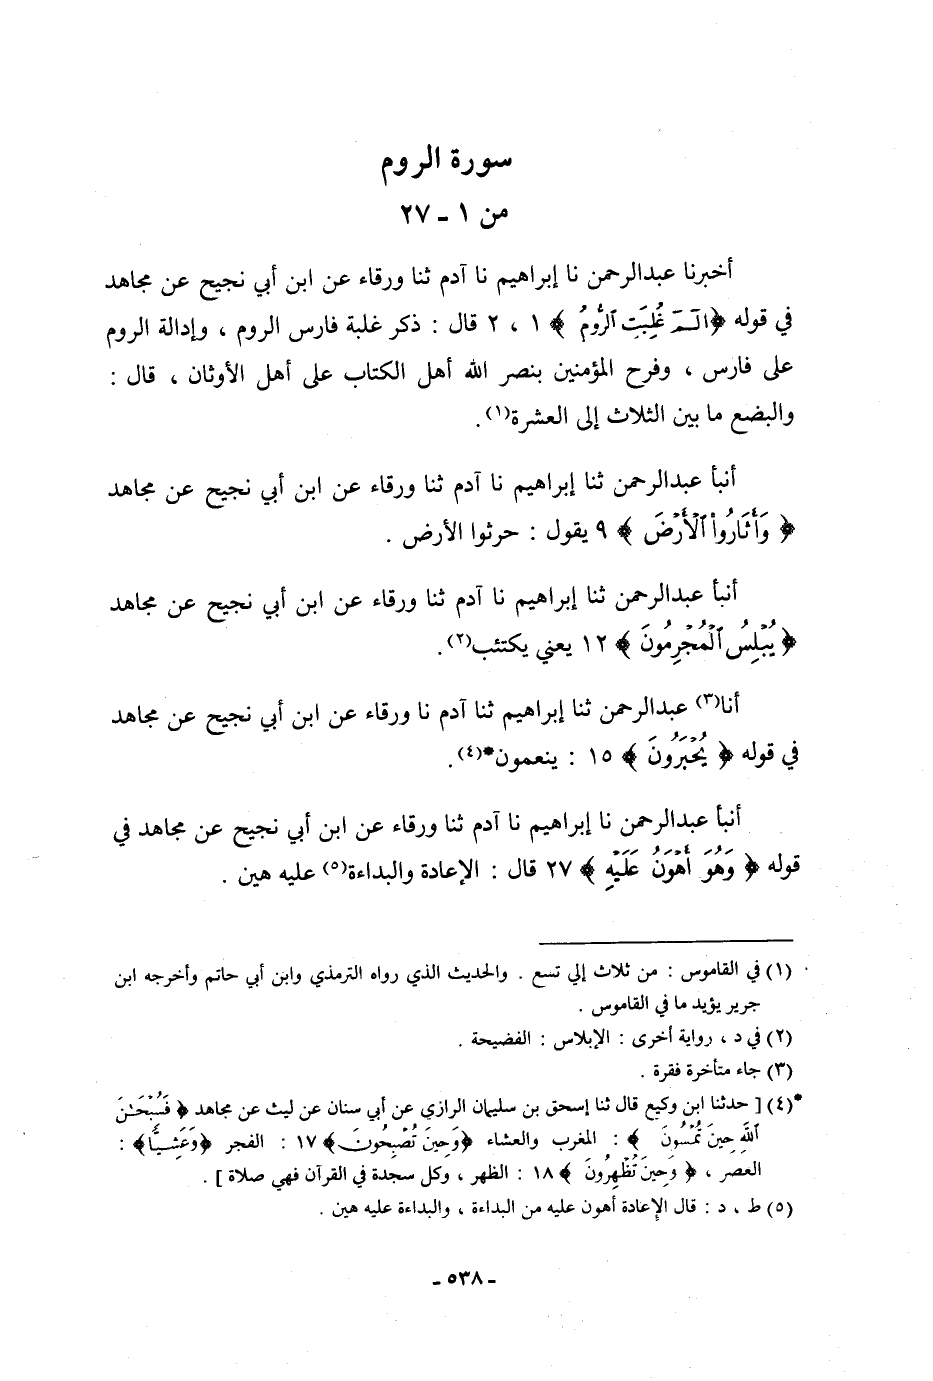 سورة الروم
من ١ - ٢٧
أخبرنا عبدالرحمن نا إبراهيم نا آدم ثنا ورقاء عن ابن أبي نجيح عن مجاهد
في قوله ﴿الٓمٓ غُلِبَتِ ٱلرُّومُ ﴾ ١ ، ٢ قال : ذكر غلبة فارس الروم ، وإدالة الروم
على فارس ، وفرح المؤمنين بنصر الله أهل الكتاب على أهل الأوثان ، قال :
والبضع ما بين الثلاث إلى العشرة(١).
أنبأ عبدالرحمن ثنا إبراهيم نا آدم ثنا ورقاء عن ابن أبي نجيح عن مجاهد
﴿ وَأَثَارُوا۟ ٱلْأَرْضَ ﴾ ٩ يقول : حرثوا الأرض .
أنبأ عبدالرحمن ثنا إبراهيم نا آدم ثنا ورقاء عن ابن أبي نجيح عن مجاهد
﴿ يُبْلِسُ ٱلْمُجْرِمُونَ ﴾ ١٢ يعني يكتئب(٢).
أنا(٣) عبدالرحمن ثنا إبراهيم ثنا آدم نا ورقاء عن ابن أبي نجيح عن مجاهد
في قوله ﴿ يُحْبَرُونَ ﴾ ١٥ : ينعمون*(٤).
أنبأ عبدالرحمن نا إبراهيم نا آدم ثنا ورقاء عن ابن أبي نجيح عن مجاهد في
قوله ﴿ وَهُوَ أَهْوَنُ عَلَيْهِ ﴾ ٢٧ قال : الإعادة والبداءة(٥) عليه هين .
(١) في القاموس : من ثلاث إلي تسع . والحديث الذي رواه الترمذي وابن أبي حاتم وأخرجه ابن
جرير يؤيد ما في القاموس .
(٢) في د ، رواية أخرى : الإبلاس : الفضيحة .
(٣) جاء متأخرة فقرة .
*(٤) [ حدثنا ابن وكيع قال ثنا إسحق بن سليمان الرازي عن أبي سنان عن ليث عن مجاهد ﴿ فَسُبْحَٰنَ
ٱللَّهِ حِينَ تُمْسُونَ ﴾ : المغرب والعشاء ﴿وَحِينَ تُصْبِحُونَ﴾ ١٧ : الفجر ﴿وَعَشِيًّا﴾ :
العصر ، ﴿ وَحِينَ تُظْهِرُونَ ﴾ ١٨ : الظهر ، وكل سجدة في القرآن فهي صلاة ] .
(٥) ط ، د : قال الإعادة أهون عليه من البداءة ، والبداءة عليه هين .
- ٥٣٨ -